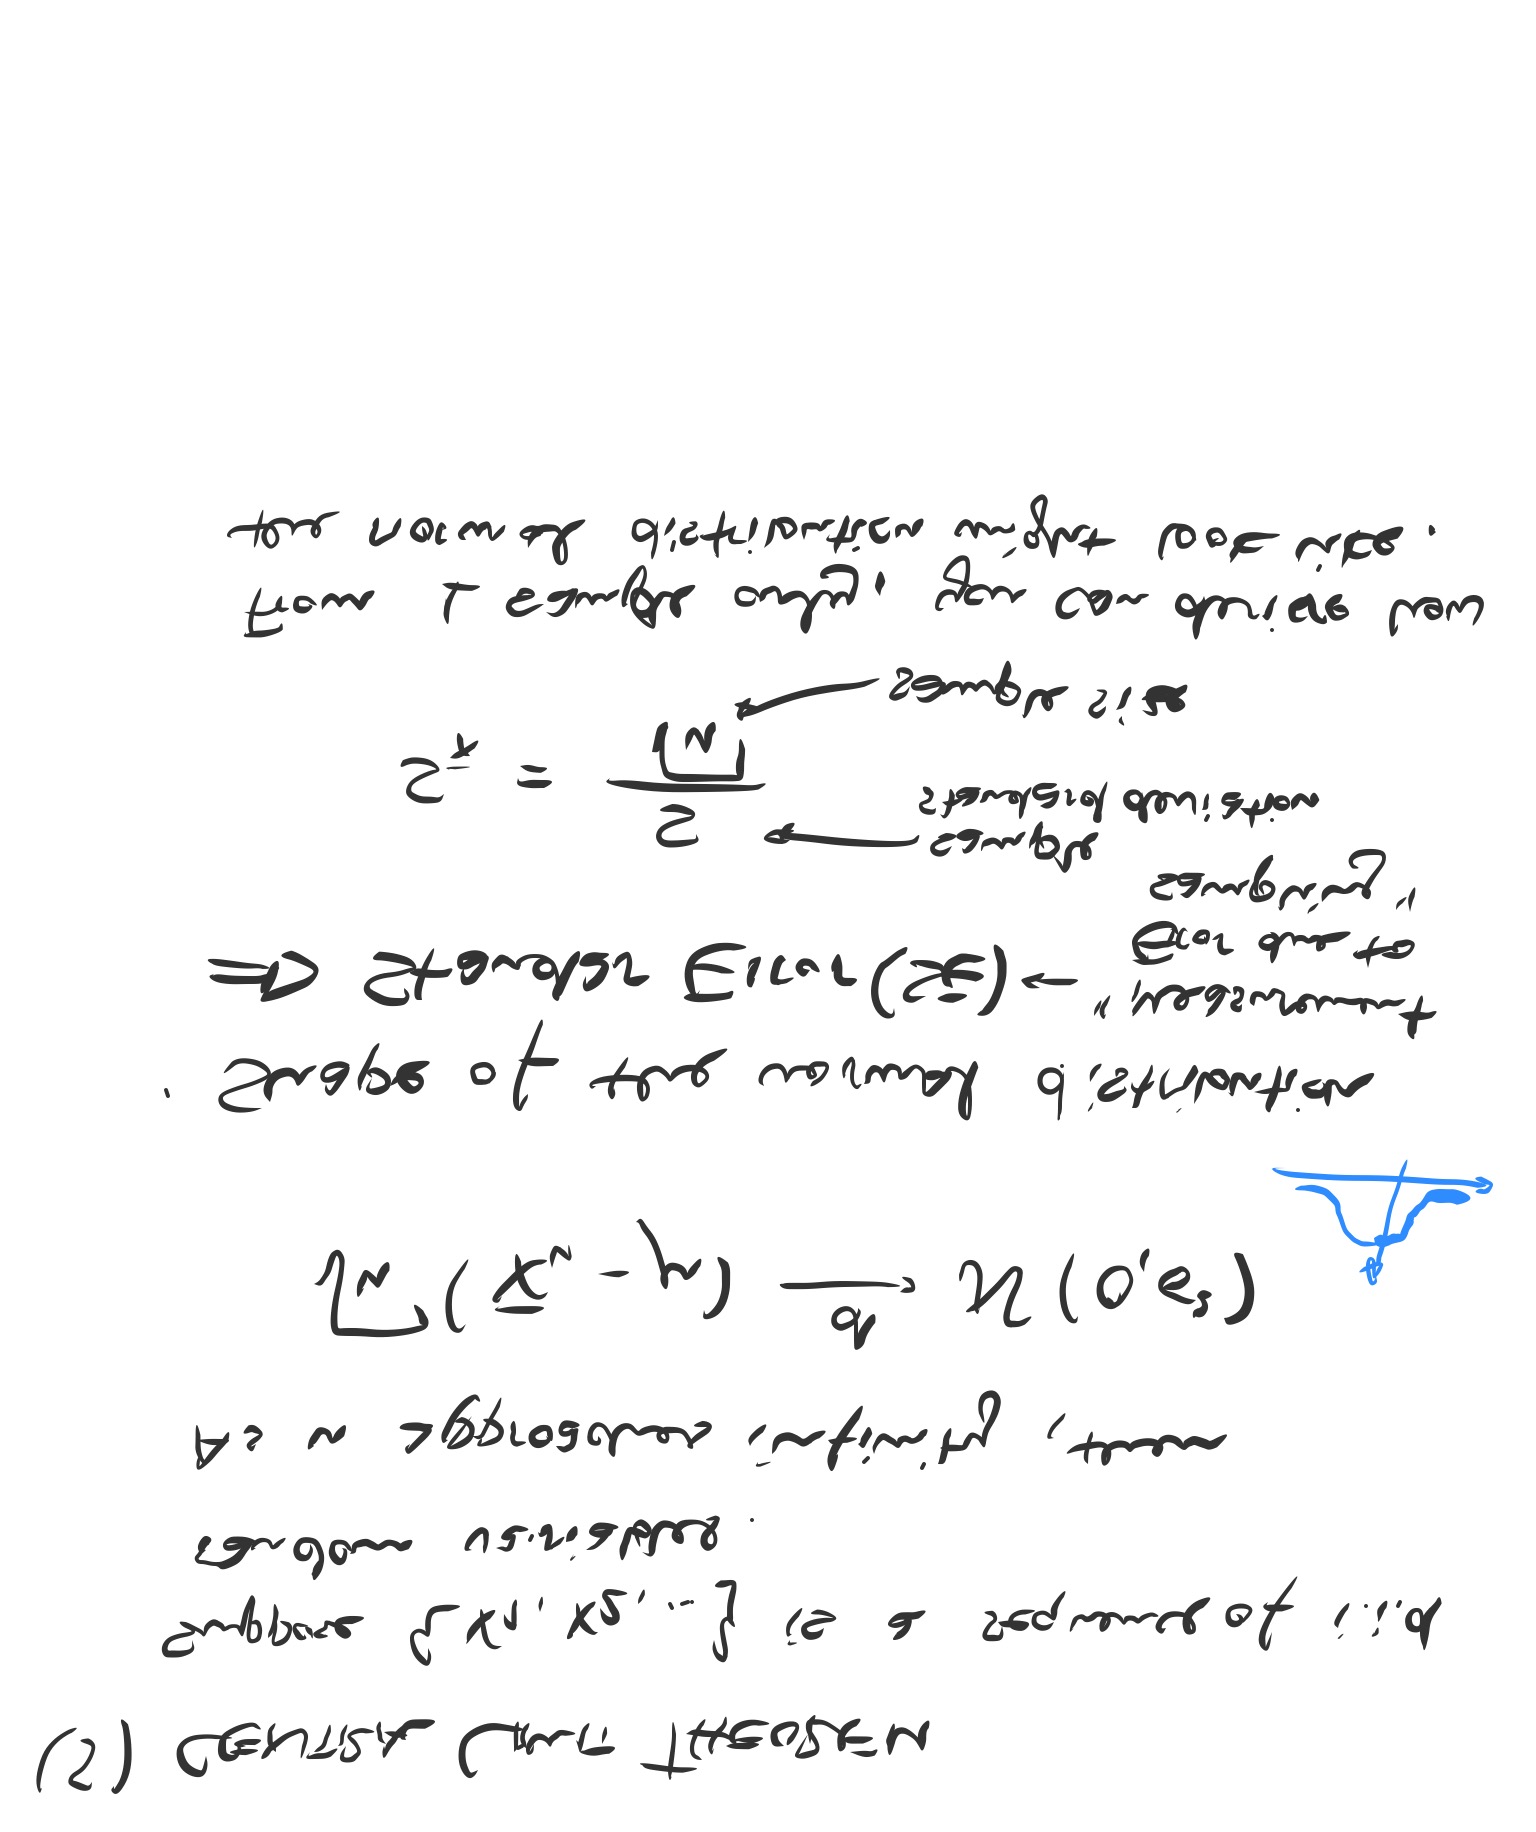 (5) CENTRAL LIMIT THEOREM
Suppose {X1, X2, ...} is a sequence of i.i.d
random variables.
As n approaches infinity, then
√n (X̄n - μ) d→ N(0, σ²)
· Shape of the normal distribution
⇒ Standar Error (SE) ← "Measurement
Error due to
sampling"
S_x̄ = S / √n
← sample
standard deviation
← sample size
From 1 sample only, you can derive how
the normal distribution might look like.